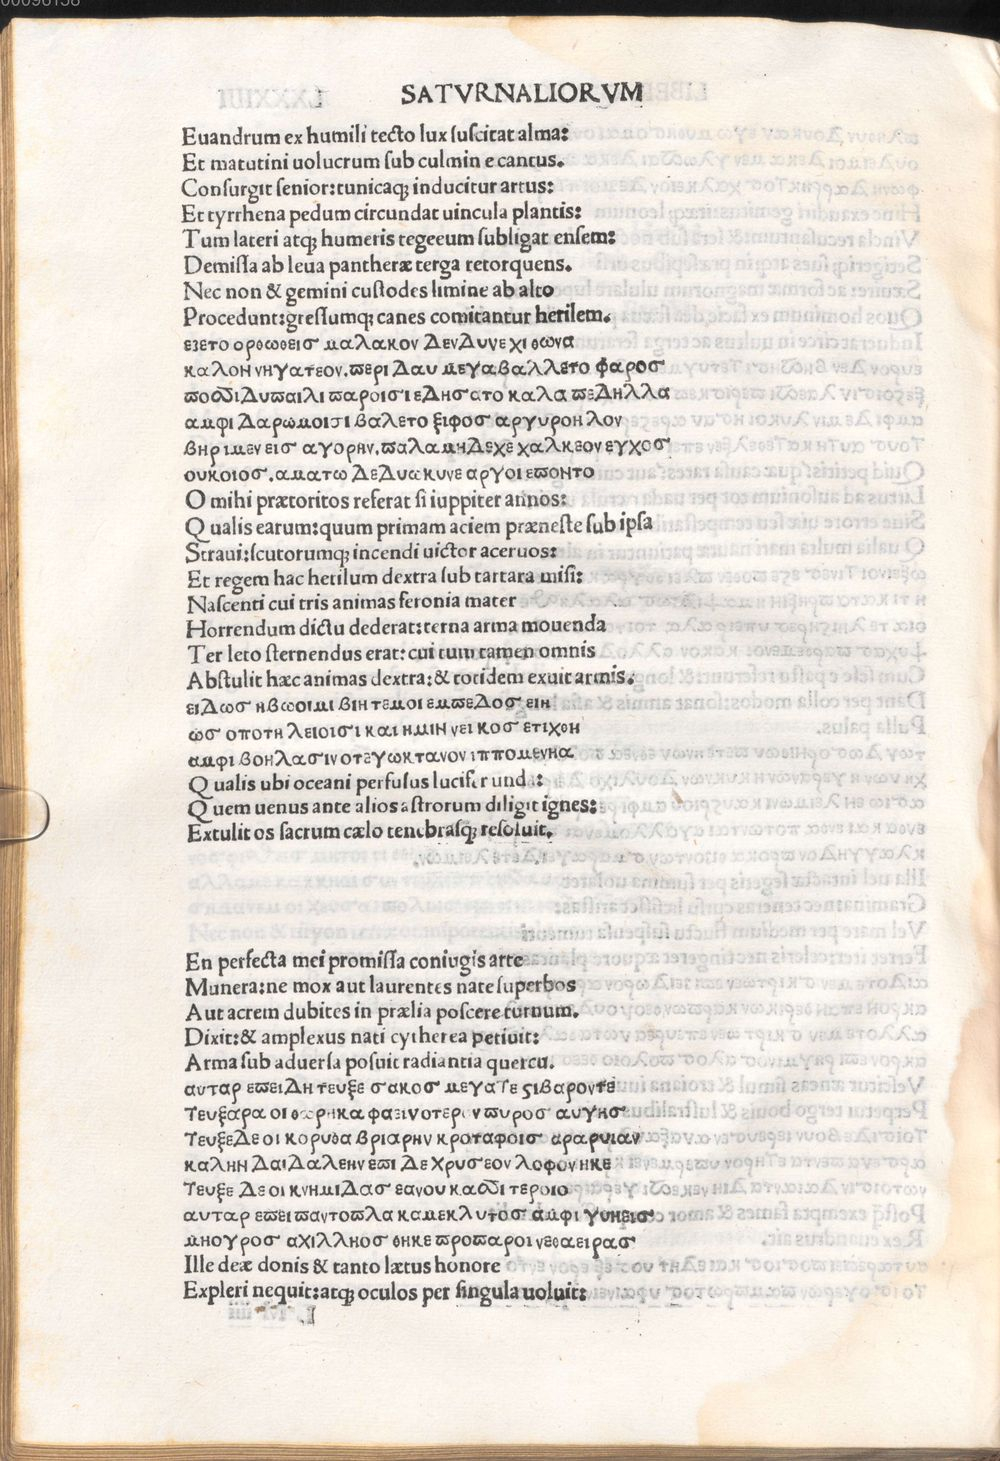 00096158
SATVRNALIORVM
Euandrum ex humili tecto lux suscitat alma:
Et matutini uolucrum sub culmin e cantus.
Consurgit senior: tunicaq; inducitur artus:
Et tyrrhena pedum circundat uincula plantis:
Tum lateri atq; humeris tegeeum subligat ensem:
Demissa ab leua pantheræ terga retorquens.
Nec non & gemini custodes limine ab alto
Procedunt: gressumq; canes comitantur herilem.
εζετο ορθωθεισ μαλακον δενδυνε χιθωνα
καλον νηγατεον. περι δαυ μεγα βαλλετο φαροσ
ποσσιδυπαιλι παροισιεδησατο καλα πεδηλλα
αμφι δαρωμοισι βαλετο ξιφοσ αργυροηλον
βηριμεν εισ αγορην. παλαμηδεχε χαλκεον εγχοσ
ουκοιοσ. αματω δεδυωκυνε αργοι εποντο
O mihi prætoritos referat si iuppiter annos:
Qualis earum: quum primam aciem præneste sub ipsa
Straui: scutorumq; incendi uictor aceruos:
Et regem hac herilum dextra sub tartara misi:
Nascenti cui tris animas feronia mater
Horrendum dictu dederat: terna arma mouenda
Ter leto sternendus erat: cui tum tamen omnis
Abstulit hæc animas dextra: & totidem exuit armis.
ειδωσ ηβωοιμι βιη τεμοι εμπεδοσ ειη
ωσ οποτη λειοισι και ημιν νει κοσ ετιχθη
αμφι βοηλασιν οτεγωκτανον ιππομενηα
Qualis ubi oceani perfusus lucifer und:
Quem uenus ante alios astrorum diligit ignes:
Extulit os sacrum cælo tenebrasq; resoluit.
En perfecta mei promissa coniugis arte
Munera: ne mox aut laurentes nate superbos
Aut acrem dubites in prælia poscere turnum.
Dixit: & amplexus nati cytherea petiuit:
Arma sub aduersa posuit radiantia quercu.
αυταρ επειδη τευξε σακοσ μεγα τε στιβαροντε
τευξαρα οι θωρηκα φαεινοτερον πυροσ αυγησ
τευξεδε οι κορυθα βριαρην κροταφοισ αραρυιαν
καλην δαιδαλεην επι δε χρυσεον λοφον ηκε
τευξε δε οι κνημιδασ εανου κασσιτεροιο
αυταρ επει παντοπλα καμεκλυτοσ αμφι γυηεισ
μηουροσ αχιλληοσ θηκε προπαροινεθαειρασ
Ille deæ donis & tanto lætus honore
Expleri nequit: atq; oculos per singula uoluit: